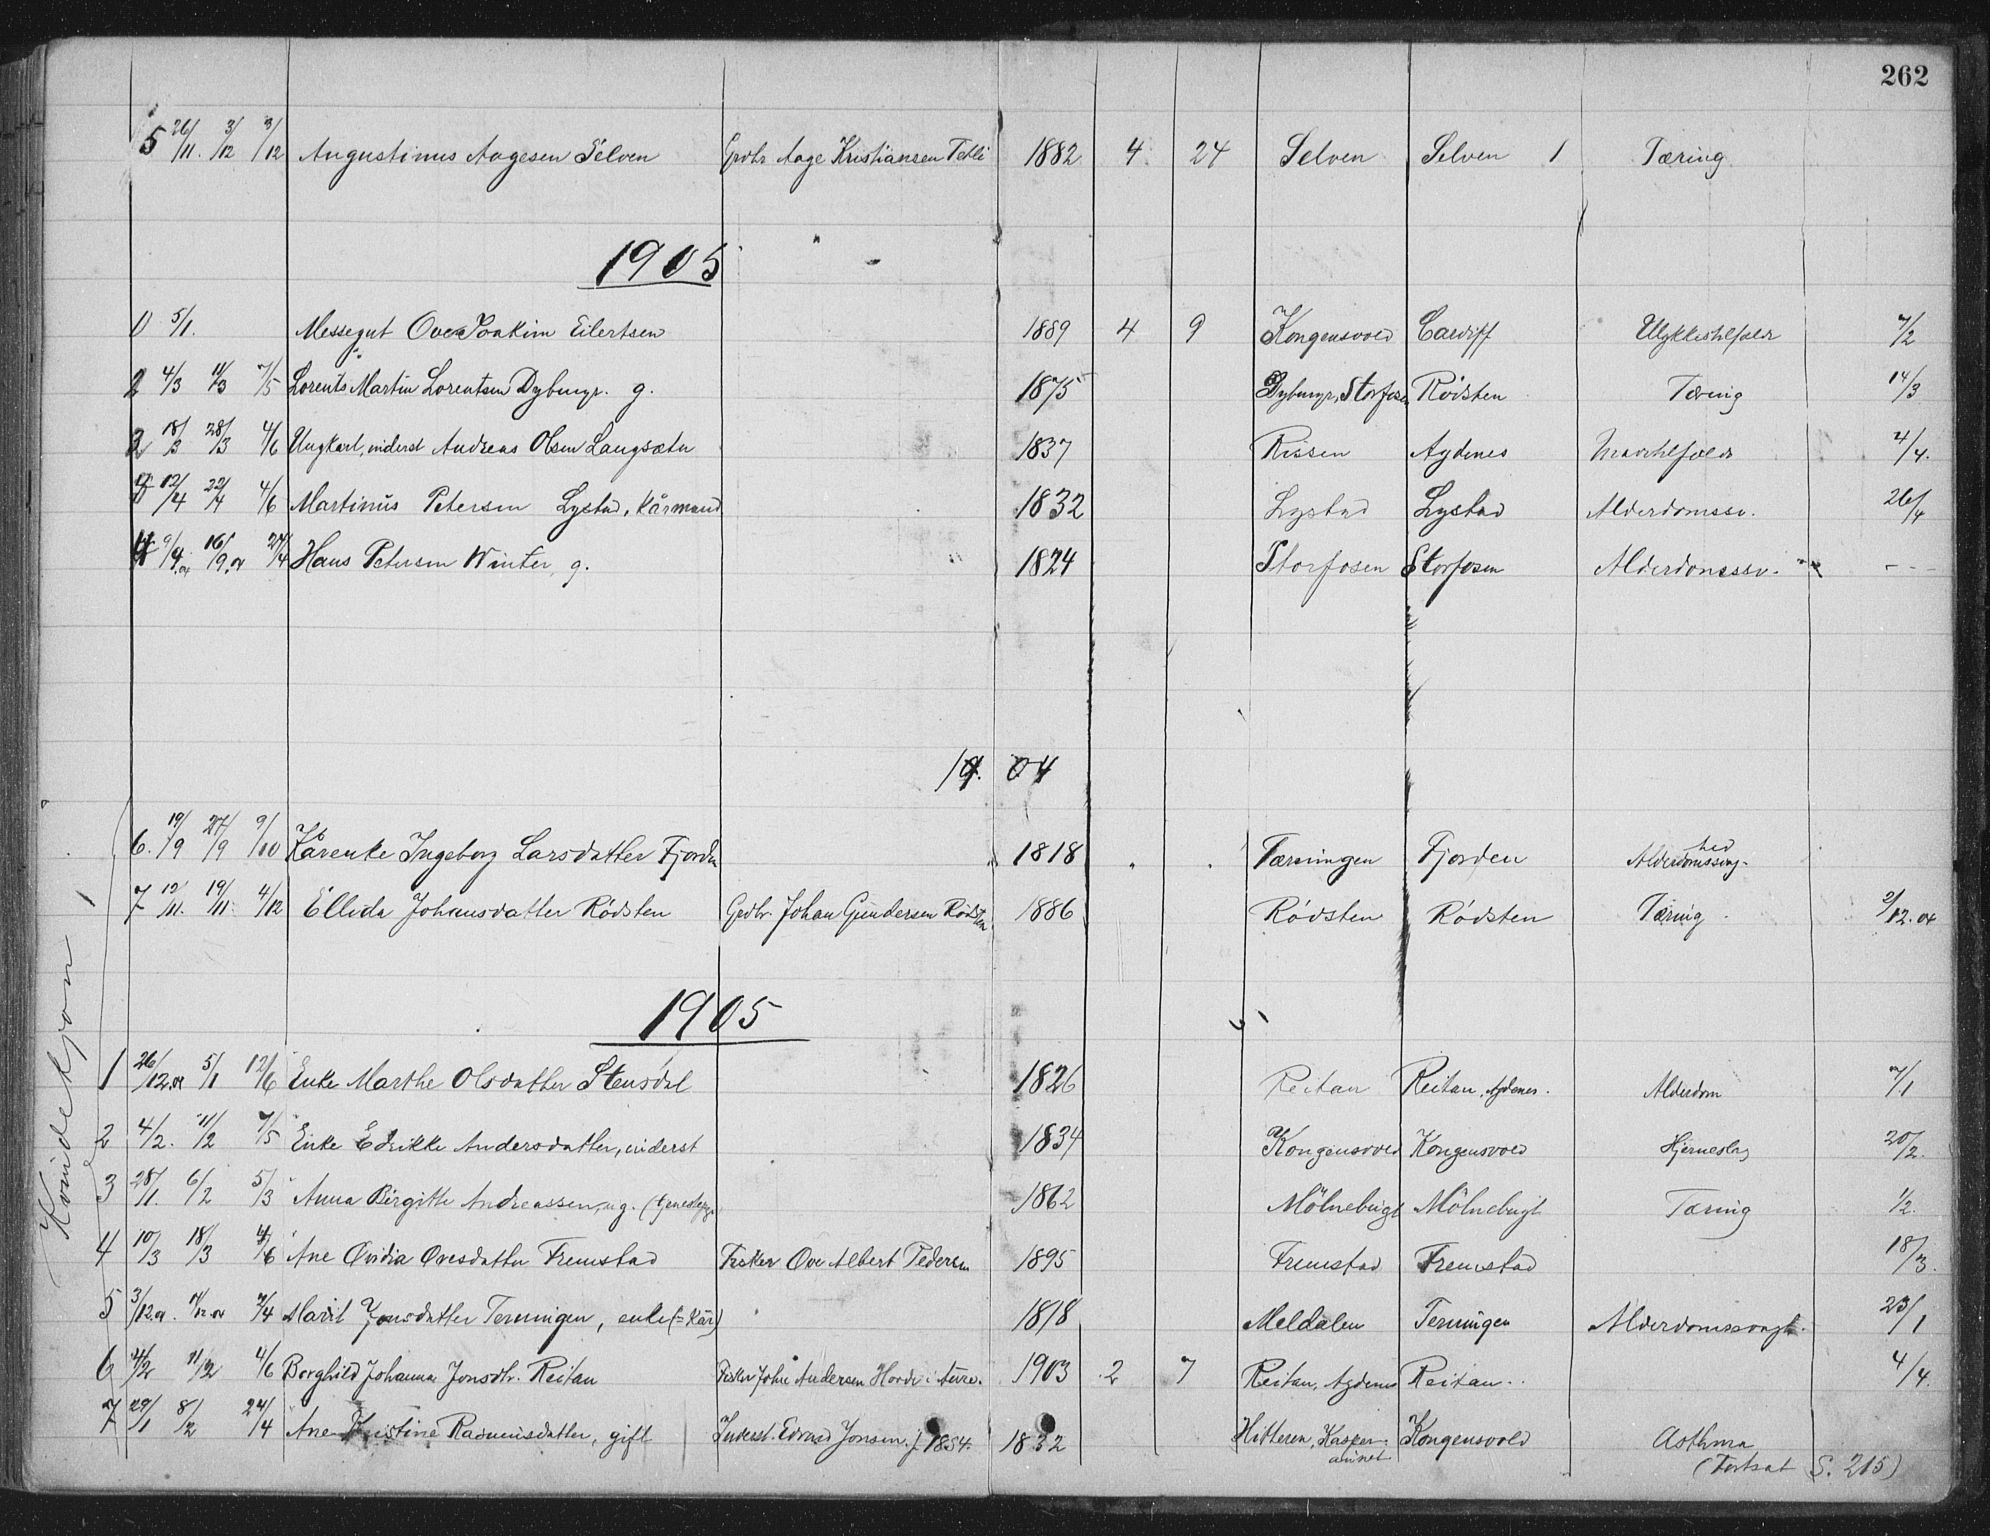 262
5 26/11. 3/12 3/12 Augustinus Aagesen Selven Grdbr Aage Kristiansen Tetli 1882 4 24 Selven Selven 1 Tæring
1905
5/1. Messegut Ove Joakim Eilertsen 1889 4 9 Kongensvold Cardiff Ulykkestilfælde 7/2
2 4/3 11/3 7/5 Lorents Martin Lorentsen Dybmyr. g. 1875 Dybmyr, Storfosen Rødsten Tæring 14/3
3 18/3 28/3 4/6 Ungkarl, inderst Andreas Olsen Langsæter 1837 Rissen Agdenes 4/4.
12/4 22/4 4/6 Martinus Petersen Lystad, Kårmand 1832 Lystad Lystad Alderdomssv. 26/4
4 9/9.04 16/9.04 24/4 Hans Petersen Winter, g. 1824 Storfosen Storfosen Alderdomssv. - - -
19. 04
6. 19/9 27/9 9/10 Karenke Ingeborg Larsdatter Fjorden 1818 . . Tærningen Fjorden Alderdomssvaghed
7 12/11. 19/11. 4/12 Ellida Johansdatter Rødsten Grdbr. Johan Gundersen Rødsten 1886 Rødsten Rødsten Tæring 2/12.04
1905
Kvindekjøn
1 26/12.04 5/1 12/6 Enke Marthe Olsdatter Stensdal 1826 Reitan Reitan, Agdenes. Alderdom 7/1
2 4/2. 11/2 7/5 Enke Edrikke Andersdatter, inderst 1834 Kongensvold Kongensvold Hjerneslag 20/2.
3 28/1. 6/2 5/3 Anna Birgitte Andreassen, ug. 1862 Mölnebugt Mölnebugt Tæring 1/2.
4 10/3 18/3 4/6 Ane Ovidia Ovesdatter Fremstad Fisker Ove Albert Pedersen 1895 Fremstad Fremstad 18/3.
5 3/12.04. 7/12.04 2/4 Marit Jonsdatter Terningen, enke (= Kår) 1818 Meldalen Terningen Alderdomssvagh. 23/1
6 4/2 11/2 4/6 Borghild Johanna Jonsdtr. Reitan Fisker John Andersen Hovde i Aure. 1903 2 7 Reitan, Agdenes Reitan.. 4/4.
7 29/1 8/2 24/4 Ane Kristine Rasmusdatter, gift Inderst. Edvard Jonsen. f. 1854. 1832 Hitteren, Kasperaunet Kongensvold Asthma
(Fortsat S. 215)